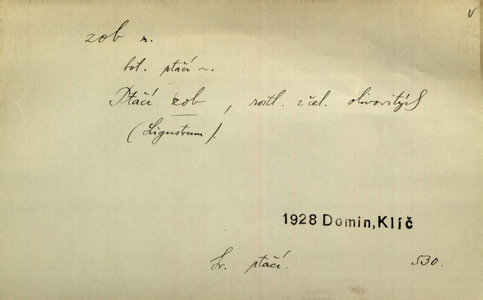 zob m.
bot. ptačí ~.
Ptačí zob, rostl. z čel. olivovitých
(Ligustrum).
1928 Domin, Klíč
Sr. ptačí. 530.